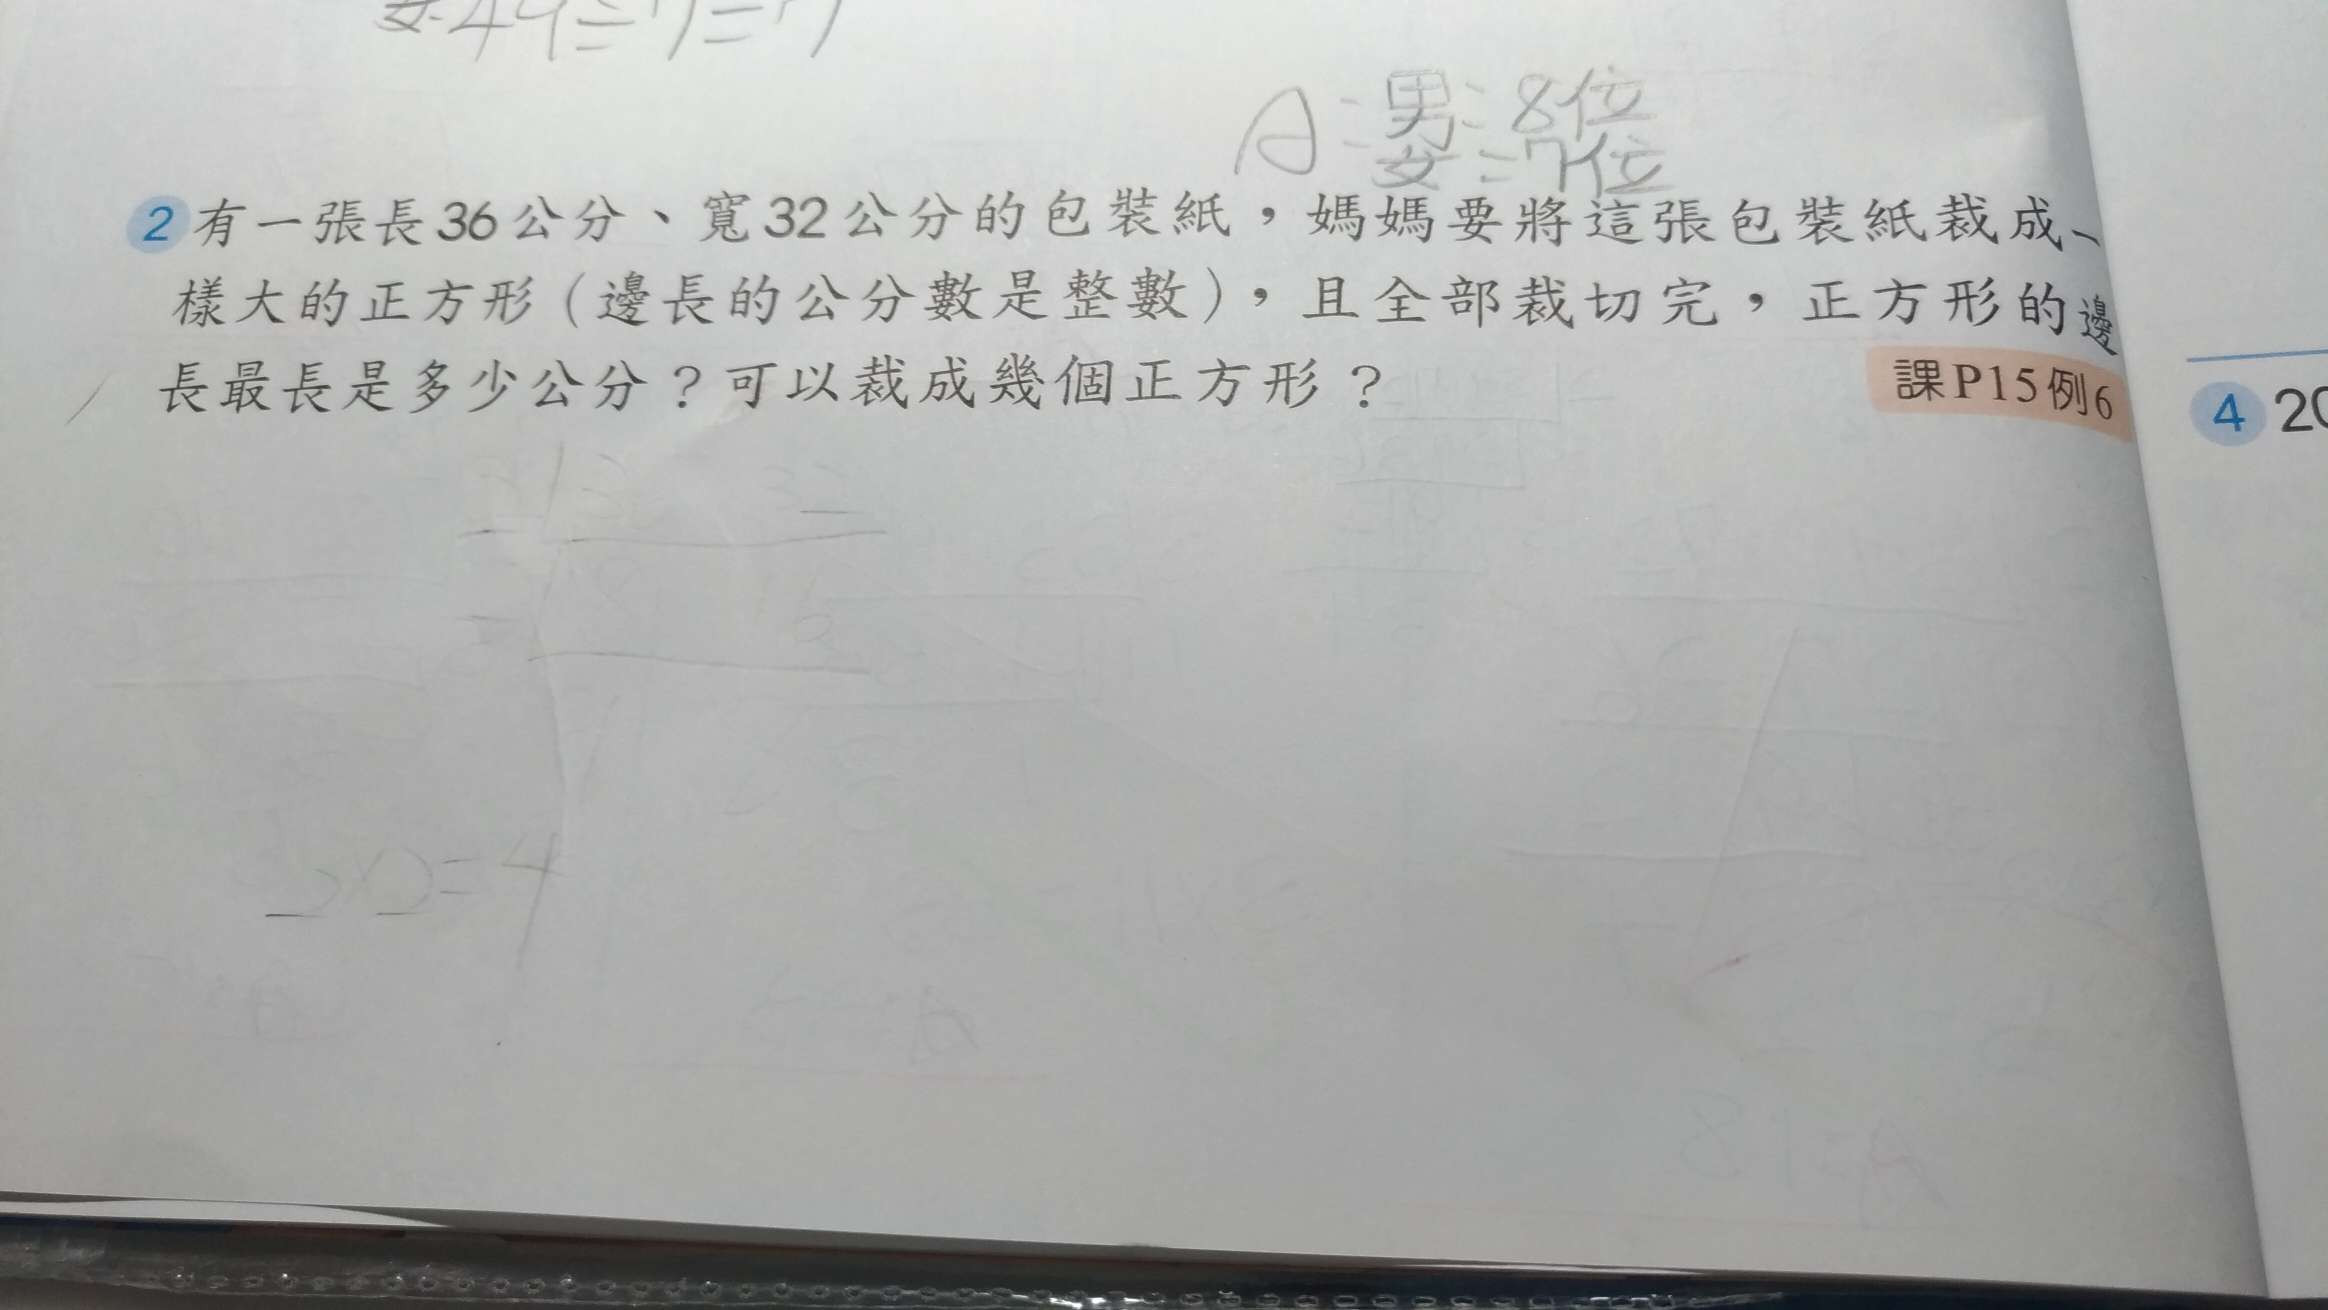 女:49÷7=7
A:男:8位
女:7位
2 有一張長36公分、寬32公分的包裝紙，媽媽要將這張包裝紙裁成一
樣大的正方形（邊長的公分數是整數），且全部裁切完，正方形的邊
長最長是多少公分？可以裁成幾個正方形？
課P15例6
4 20
2×2=4